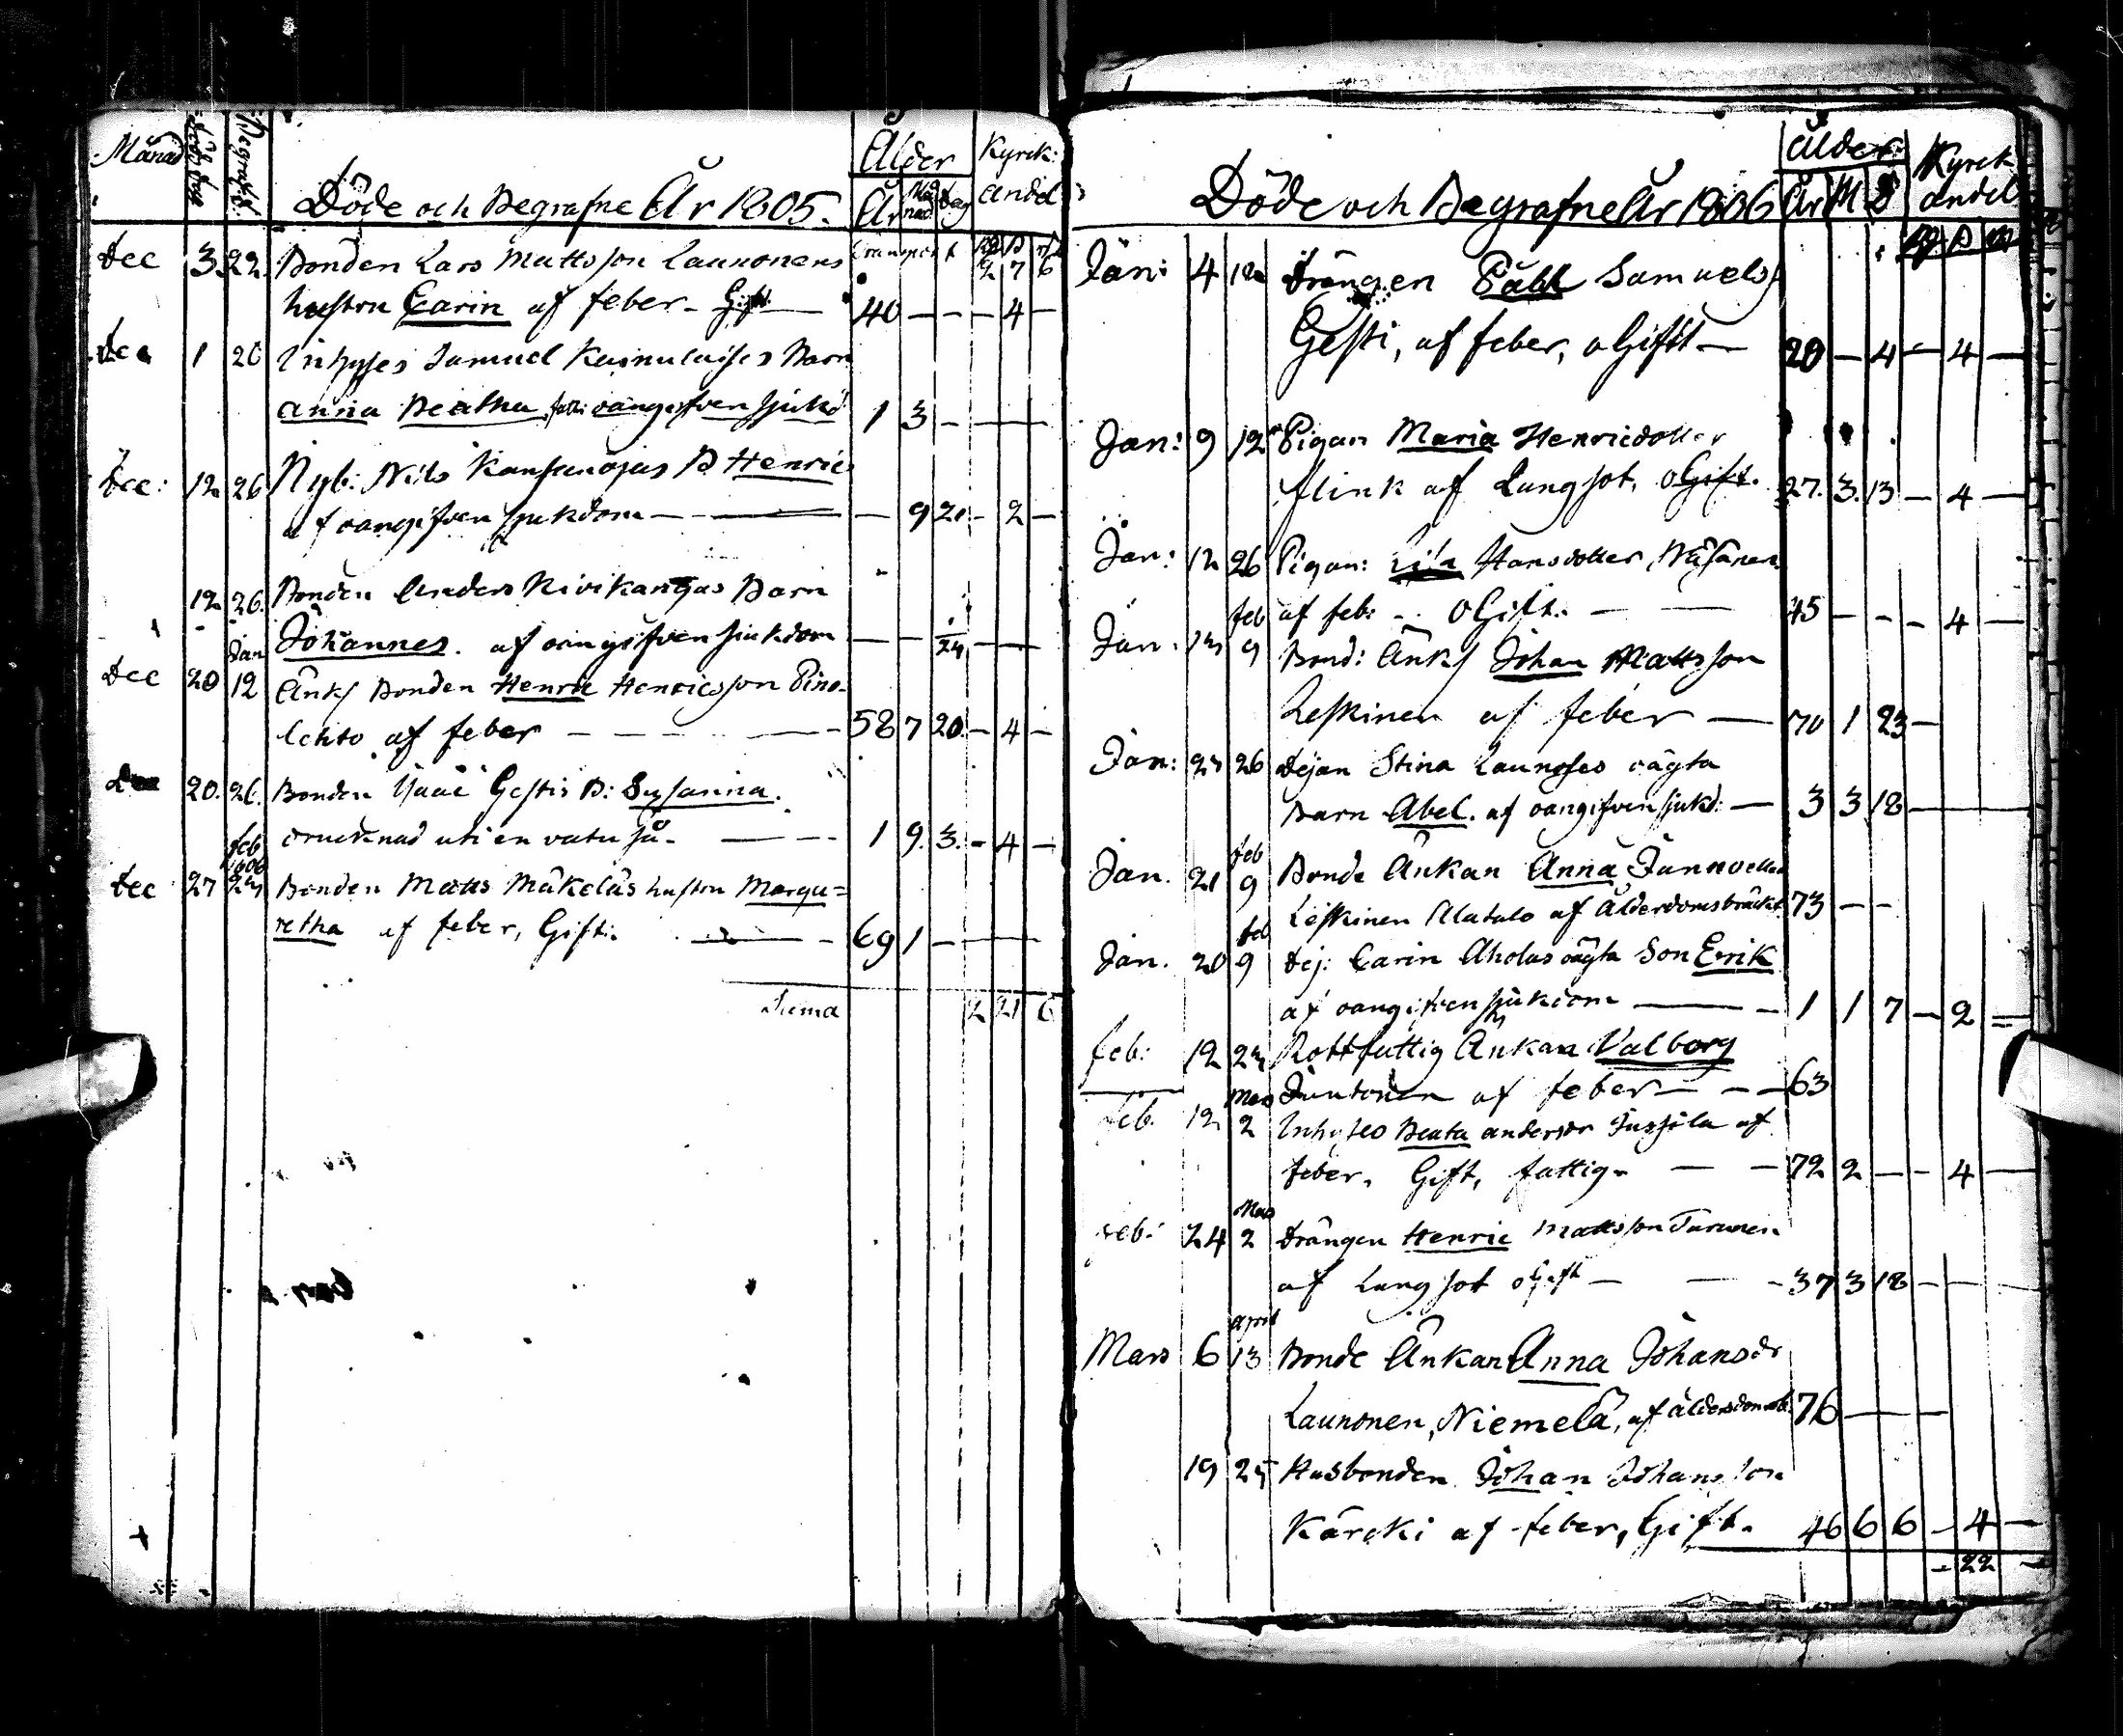 Månad Död dag Begrafd: Döde och Begrafne År 1805. Ålder År Månad Dag Kyrck: andel
Transport 2 7 6
Dec 3. 22. Bonden Lars Mattsson Launonens
hustru Carin af feber. Gift 40 — — — 4 —
Dec 1 26 Inhyses Samuel Kainulaises Barn
Anna Beatha, oangifven sjukd: 1 3 —
Dec: 12 26 Nyb: Nils B Henric
af oangifven sjukdom — — 9 21 — 2 —
12 26. Bonden Anders Kivikangas Barn
Johannes. af oangifven sjukdom — — 24 —
Jan
Dec 20 12 Änk Bonden Henric Henricsson Pino-
lehto af feber — — — 58 7 20 — 4 —
20. 26. Bonden Gestis B: Susanna.
drucknad uti en vatu så. — — 1 9. 3. — 4 —
feb 1806
Dec 27 23 Bonden Matts Mäkeläs hustru Marga=
retha af feber, Gift. — 69 1 —
Suma 2 21 6
Döde och Begrafne År 1806 Ålder År M D Kyrck andel
Jan: 4 12 Drängen Påhl Samuels
Gesti, af feber, oGift — 20 — 4 — 4 —
Jan: 9 12 Pigan Maria Henricdotter
Flink af Lungsot, oGift. 27. 3. 13 — 4 —
Jan: 12 26 Pigan: Hansdotter, Väisänen
af feb: oGift. — — 45 — — — 4 —
feb
Jan. 13 9 Bond: Änk Johan Mattsson
Leskinen af feber — 70 1 23 —
Jan: 23 26 Dejan Stina Launoses oägta
Barn Abel. af oangifven sjukd: — 3 3 18 —
feb
Jan. 21 9 Bonde Änkan Anna
Leskinen Alatalo af Ålderdomsbräckl. 73 — —
feb
Jan. 20 9 Dej: Carin Aholas oägta Son Erik
af oangifven sjukdom — — 1 1 7 — 2 =
feb: 12 23 Rottfattig Änkan Valborg
Juntonen af feber — — 63
Mars
feb. 12 2 Inhyses Beata andersdr Jussila af
feber, Gift, fattig. — — 72 2 — — 4 —
Mars
feb: 24 2 Drängen Henric Mattsson Turunen
af Lungsot oGift — — 37 3 18 —
April
Mars 6 13 Bonde Änkan Anna Johansdr
Launonen, Niemelä, af ålderdomsb: 76 — —
19 25 Husbonden Johan Johansson
Kärcki af feber, Gift. 46 6 6 — 4 —
— 22 —